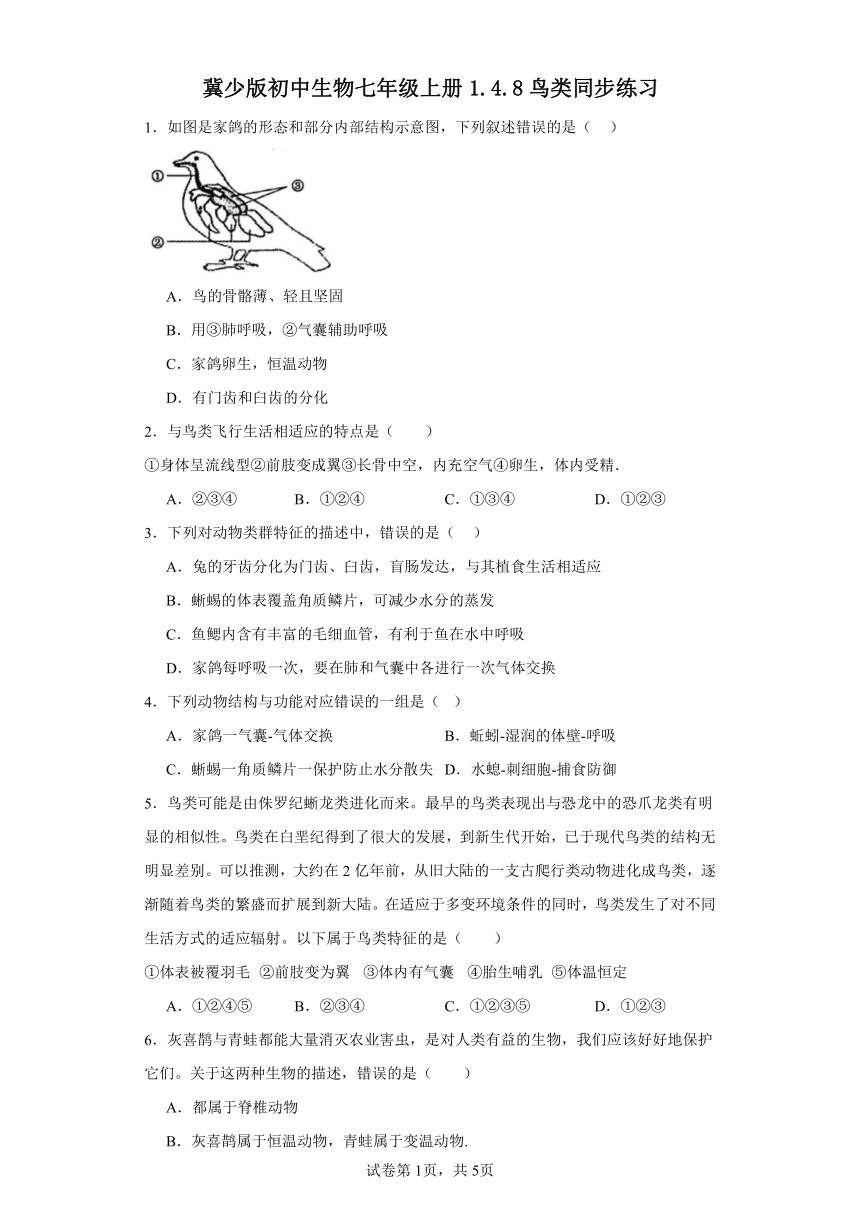 冀少版初中生物七年级上册 1.4.8 鸟类同步练习
1．如图是家鸽的形态和部分内部结构示意图，下列叙述错误的是（　）
①
③
②
A．鸟的骨骼薄、轻且坚固
B．用③肺呼吸，②气囊辅助呼吸
C．家鸽卵生，恒温动物
D．有门齿和臼齿的分化
2．与鸟类飞行生活相适应的特点是（　　）
①身体呈流线型②前肢变成翼③长骨中空，内充空气④卵生，体内受精．
A．②③④　　B．①②④　　C．①③④　　D．①②③
3．下列对动物类群特征的描述中，错误的是（　）
A．兔的牙齿分化为门齿、臼齿，盲肠发达，与其植食生活相适应
B．蜥蜴的体表覆盖角质鳞片，可减少水分的蒸发
C．鱼鳃内含有丰富的毛细血管，有利于鱼在水中呼吸
D．家鸽每呼吸一次，要在肺和气囊中各进行一次气体交换
4．下列动物结构与功能对应错误的一组是（　）
A．家鸽一气囊-气体交换　　B．蚯蚓-湿润的体壁-呼吸
C．蜥蜴一角质鳞片一保护防止水分散失　D．水螅-刺细胞-捕食防御
5．鸟类可能是由侏罗纪蜥龙类进化而来。最早的鸟类表现出与恐龙中的恐爪龙类有明
显的相似性。鸟类在白垩纪得到了很大的发展，到新生代开始，已于现代鸟类的结构无
明显差别。可以推测，大约在 2 亿年前，从旧大陆的一支古爬行类动物进化成鸟类，逐
渐随着鸟类的繁盛而扩展到新大陆。在适应于多变环境条件的同时，鸟类发生了对不同
生活方式的适应辐射。以下属于鸟类特征的是（　　）
①体表被覆羽毛 ②前肢变为翼 ③体内有气囊 ④胎生哺乳 ⑤体温恒定
A．①②④⑤　　B．②③④　　C．①②③⑤　　D．①②③
6．灰喜鹊与青蛙都能大量消灭农业害虫，是对人类有益的生物，我们应该好好地保护
它们。关于这两种生物的描述，错误的是（　　）
A．都属于脊椎动物
B．灰喜鹊属于恒温动物，青蛙属于变温动物.
试卷第 1页，共 5页